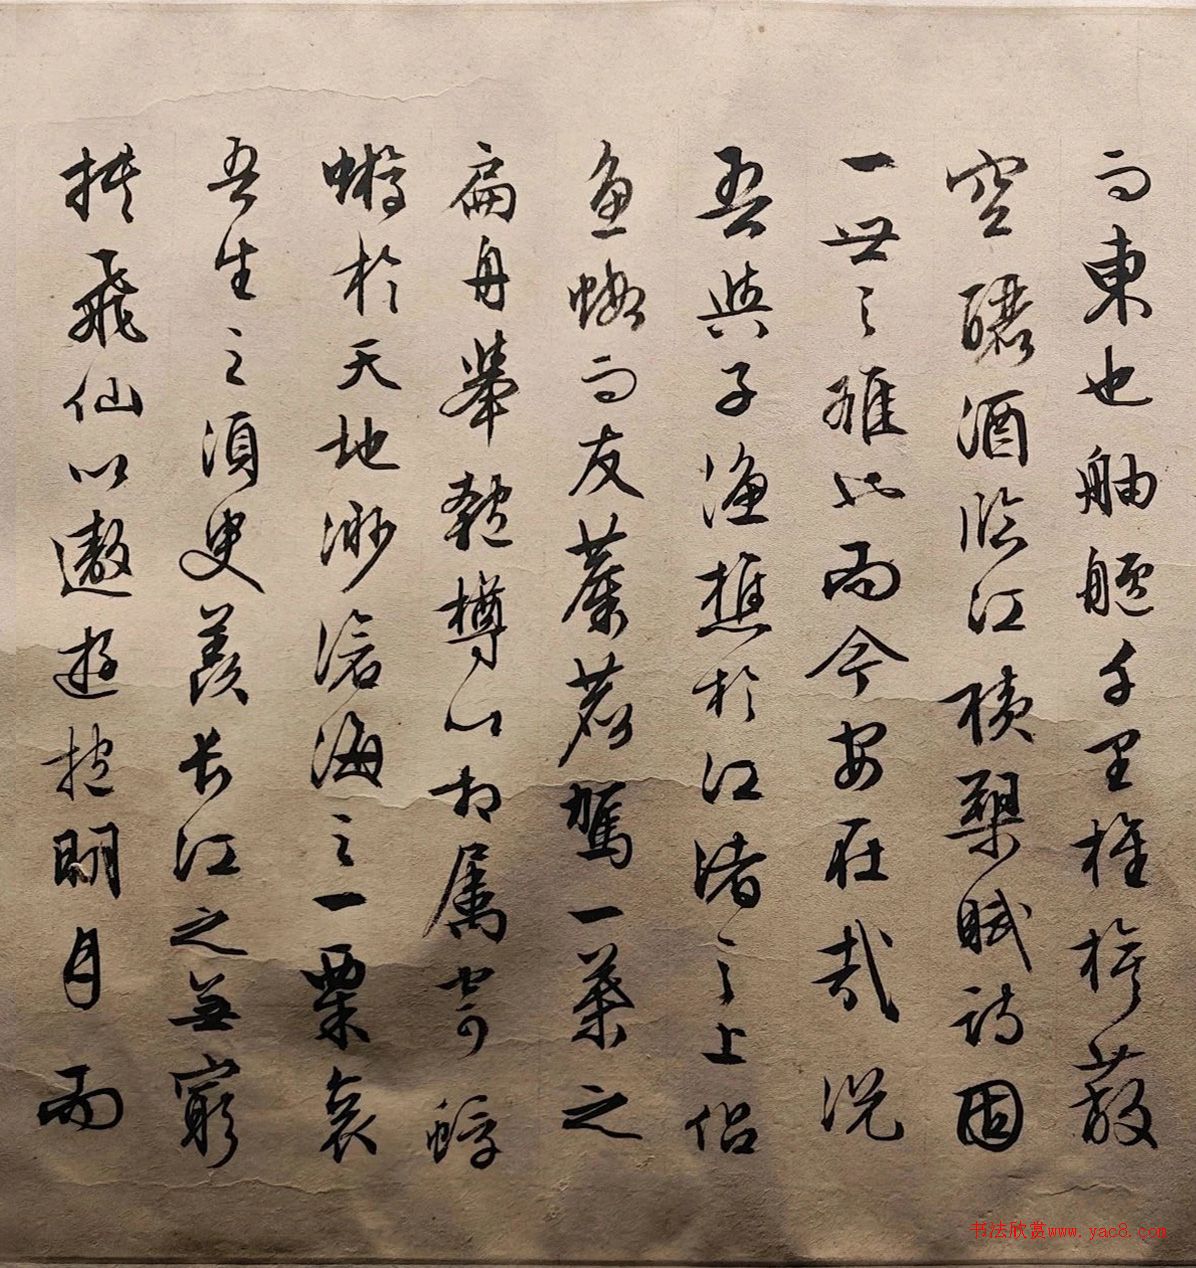 而東也舳艫千里旌旗蔽
空釃酒臨江横槊賦詩固
一世之雄也而今安在哉況
吾與子漁樵於江渚之上侣
魚蝦而友麋鹿駕一葉之
扁舟舉匏樽以相属寄蜉
蝣於天地渺滄海之一粟哀
吾生之須臾羨長江之無窮
挟飛仙以遨遊抱明月而
书法欣赏www.yac8.com